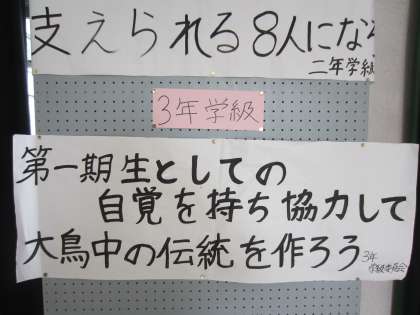 支えられる8人になろ
二年学級
3年学級
第一期生としての
自覚を持ち協力して
大鳥中の伝統を作ろう
3年
学級委員会